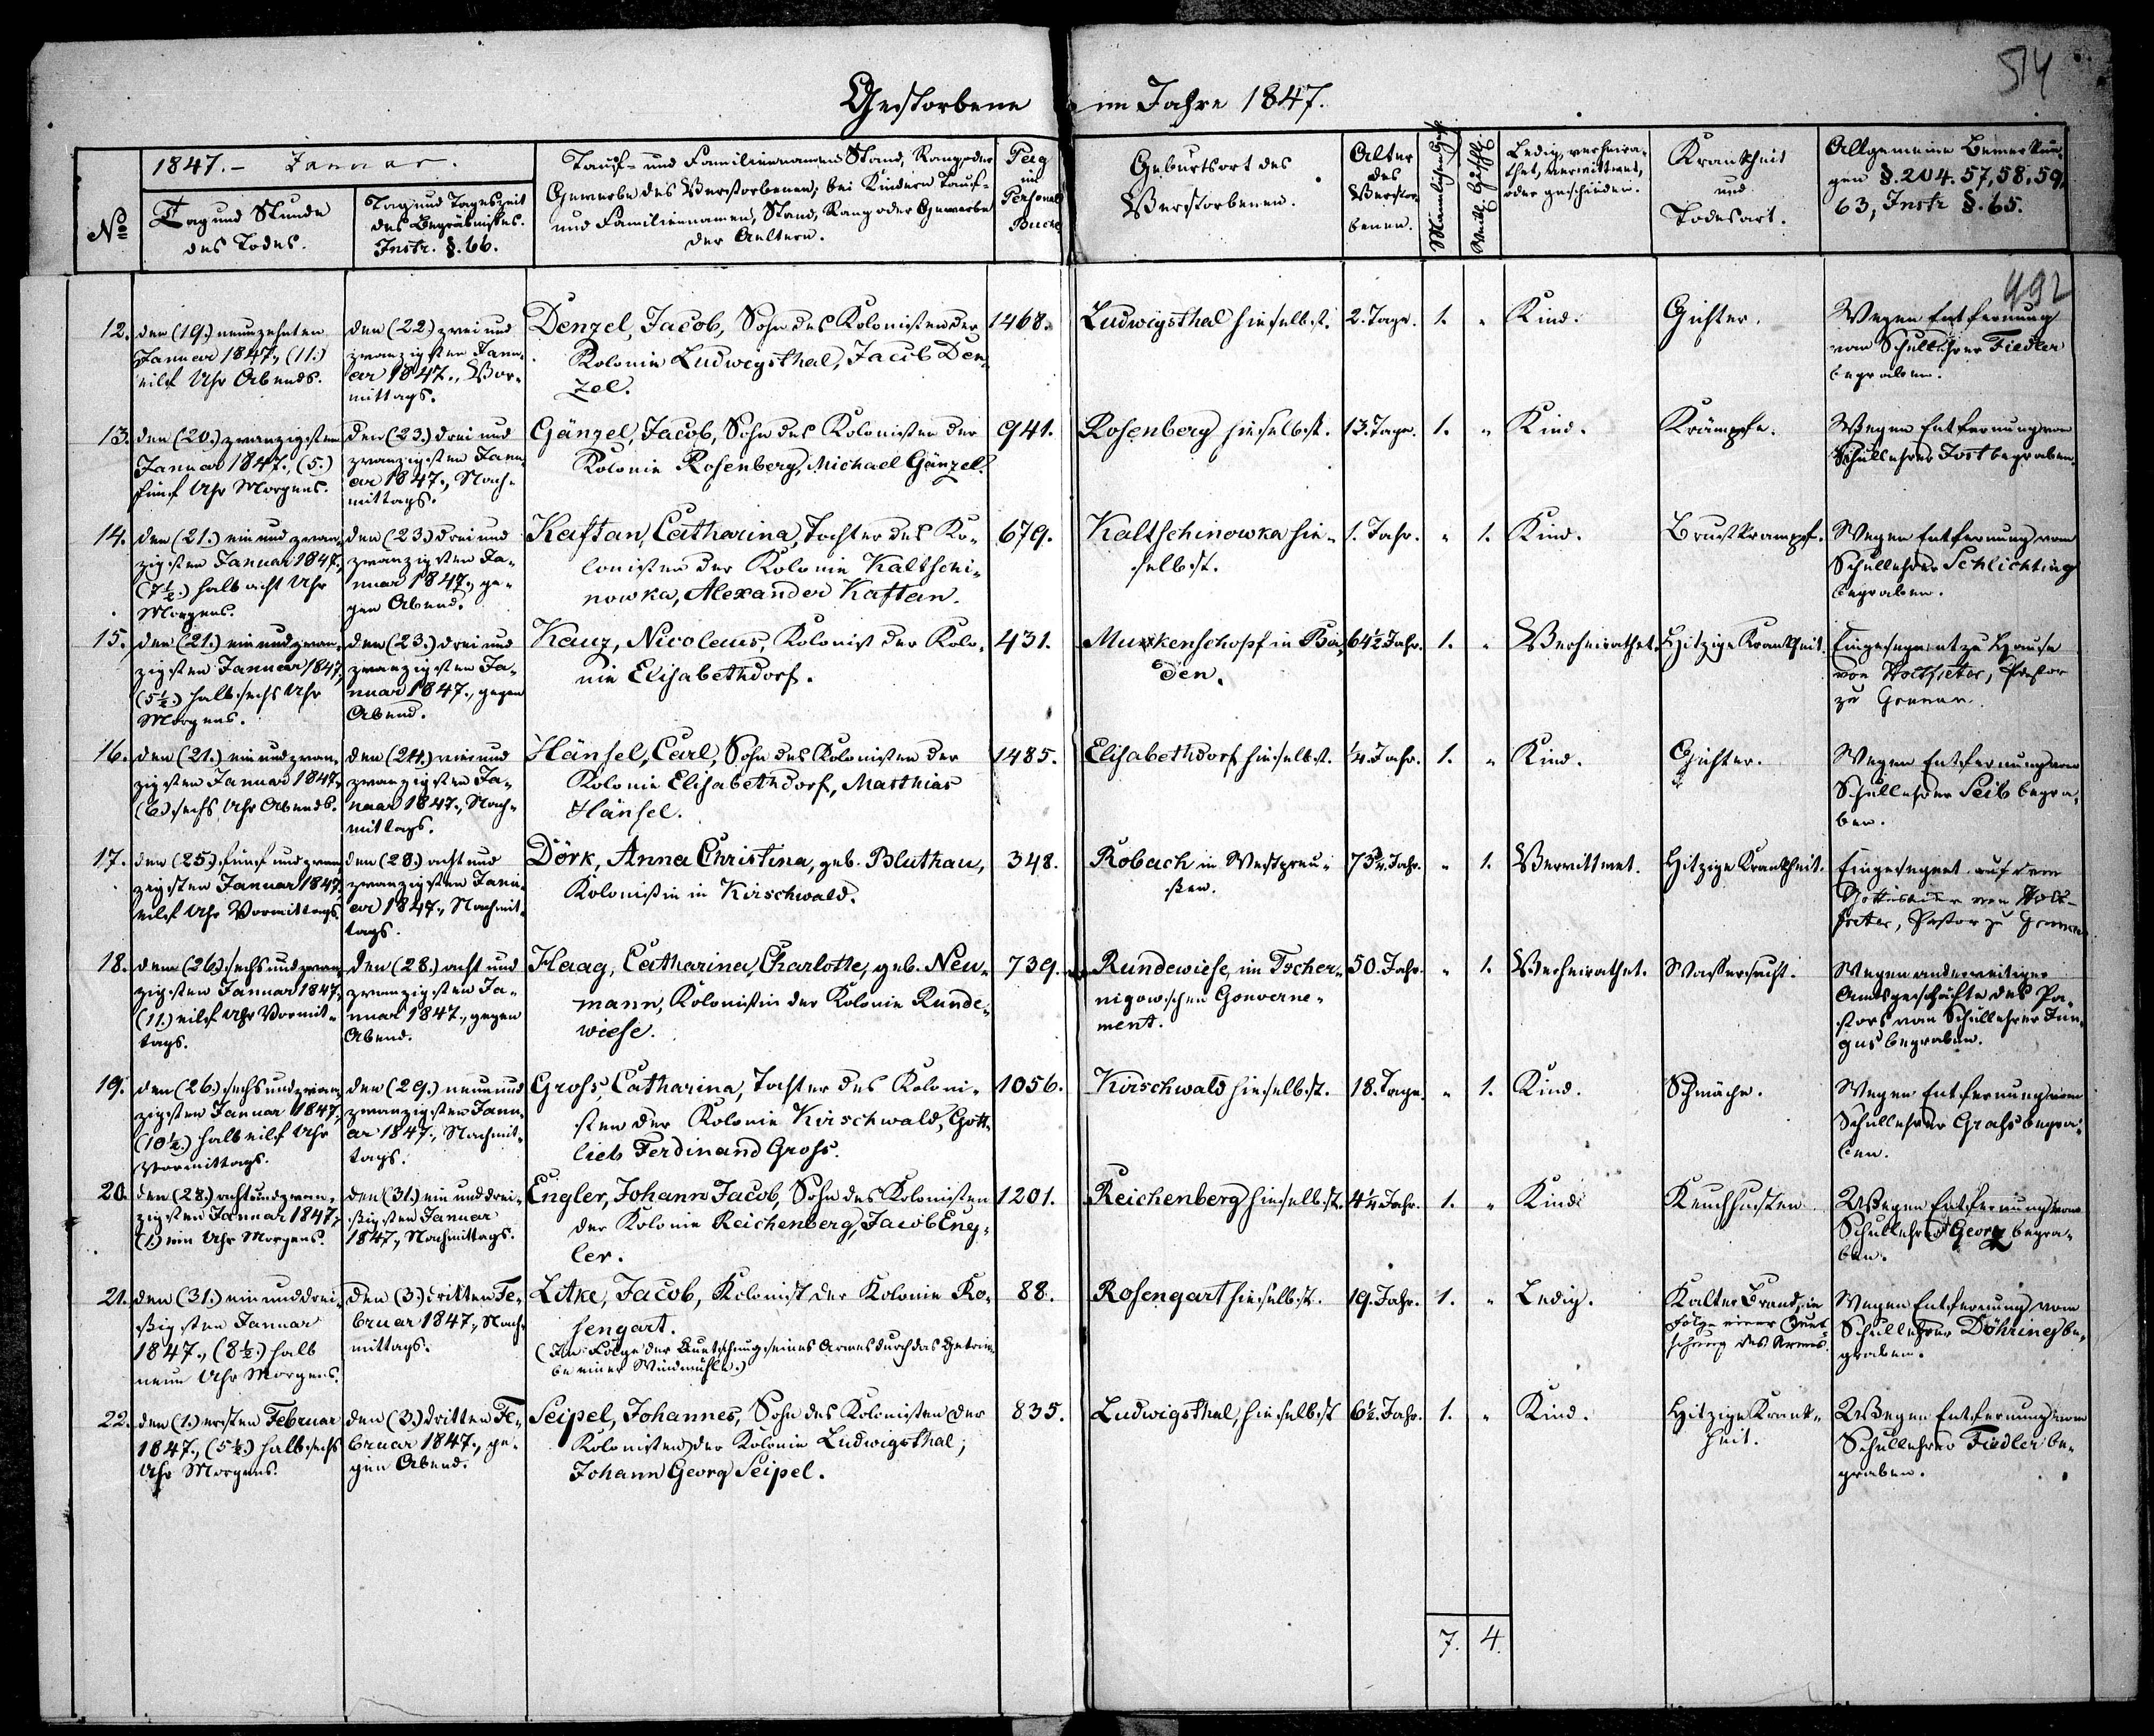 514
Gestorbene im Jahre 1847.
No
1847. - Januar.
Tag und Stunde
des Todes.
Tag und Tageszeit
des Begräbnißes.
Instr. §. 66.
Tauf- und Familiennamen, Stand, Rang oder
Gewerbe des Verstorbenen; bei Kindern Tauf-
und Familiennamen, Stand, Rang oder Gewerbe
der Aeltern.
Pag
im
Personal
Buche
Geburtsort des
Verstorbenen.
Alter
des
Verstor-
benen.
Männlichen Geschl.
Weibl. Geschl.
Ledig, verheira-
thet, verwittwet,
oder geschieden.
Krankheit
und
Todesart.
Allgemeine Bemerkun-
gen §. 204. 57, 58, 59,
63, Instr §. 65.
492
12.
den (19.) neunzehnten
Januar 1847., (11.)
eilf Uhr Abends.
den (22) zwei und
zwanzigsten Janu-
ar 1847., Vor-
mittags.
Denzel, Jacob, Sohn des Kolonisten der
Kolonie Ludwigsthal, Jacob Den-
zel.
1468.
Ludwigsthal hieselbst.
2. Tage.
1.
"
Kind.
Gichter.
Wegen Entfernung
vom Schullehrer Fiedler
begraben.
13.
den (20.) zwanzigsten
Januar 1847., (5.)
fünf Uhr Morgens.
den (23.) drei und
zwanzigsten Janu-
ar 1847., Nach-
mittags.
Gänzel, Jacob, Sohn des Kolonisten der
Kolonie Rosenberg, Michael Gänzel.
941.
Rosenberg hieselbst.
13. Tage.
1.
"
Kind.
Krämpfe.
Wegen Entfernung vom
Schullehrer Jost begraben.
14.
den (21.) ein und zwan-
zigsten Januar 1847.,
(7½.) halb acht Uhr
Morgens.
den (23.) drei und
zwanzigsten Ja-
nuar 1847., ge-
gen Abend.
Kaftan, Catharina, Tochter des Ko-
lonisten der Kolonie Kaltschi-
nowka, Alexander Kaftan.
679.
Kaltschinowka hie-
selbst.
1. Jahr.
"
1.
Kind.
Brustkrampf.
Wegen Entfernung vom
Schullehrer Schlichting
begraben.
15.
den (21.) ein und zwan-
zigsten Januar 1847.,
(5½.) halb sechs Uhr
Morgens.
den (23.) drei und
zwanzigsten Ja-
nuar 1847., gegen
Abend.
Kauz, Nicolaus, Kolonist der Kolo-
nie Elisabethdorf.
431.
Muckenschopf in Ba-
den.
64½ Jahr.
1.
"
Verheirathet.
Hitzige Krankheit.
Eingesegnet zu Hause
von Holtfreter, Pastor
zu Grunau.
16.
den (21.) ein und zwan-
zigsten Januar 1847.,
(6.) sechs Uhr Abends.
den (24.) vier und
zwanzigsten Ja-
nuar 1847., Nach-
mittags.
Hänsel, Carl, Sohn des Kolonisten der
Kolonie Elisabethdorf, Matthias
Hänsel.
1485.
Elisabethdorf hieselbst.
¼. Jahr.
1.
"
Kind.
Gichter.
Wegen Entfernung vom
Schullehrer Seib begra-
ben.
17.
den (25.) fünf und zwan-
zigsten Januar 1847.
eilf Uhr Vormittags.
den (28.) acht und
zwanzigsten Janu-
ar 1847., Nachmit-
tags.
Dörk, Anna Christina, geb. Bluthau,
Kolonistin in Kirschwald.
348.
Robach in Westpreu-
ßen.
73¼. Jahr.
"
1.
Verwittwet.
Hitzige Krankheit.
Eingesegnet auf dem
Gottesacker von Holt-
freter, Pastor zu Grunau
18.
den (26.) sechs und zwan-
zigsten Januar 1847.,
(11.) eilf Uhr Vormit-
tags.
den (28.) acht und
zwanzigsten Ja-
nuar 1847., gegen
Abend.
Haag, Catharina, Charlotte, geb. Neu-
mann, Kolonistin der Kolonie Runde-
wiese.
739.
Rundewiese, im Tscher-
nigowschen Gouverne-
ment.
50. Jahr.
"
1.
Verheirathet.
Wassersucht.
Wegen anderweitiger
Amtsgeschäfte des Pa-
stors vom Schullehrer Jun-
gus begraben.
19.
den (26.) sechs und zwan-
zigsten Januar 1847.,
(10½.) halb eilf Uhr
Vormittags.
den (29.) neun und
zwanzigsten Janu-
ar 1847., Nachmit-
tags.
Groß, Catharina, Tochter des Koloni-
sten der Kolonie Kirschwald, Gott-
lieb Ferdinand Groß.
1056.
Kirschwald hieselbst.
18. Tage.
"
1.
Kind.
Schwäche.
Wegen Entfernung vom
Schullehrer Grahs begra-
ben.
20.
den (28.) acht und zwan-
zigsten Januar 1847.,
(1.) ein Uhr Morgens.
den (31.) ein und drei-
ßigsten Januar
1847., Nachmittags.
Engler, Johann Jacob, Sohn des Kolonisten
der Kolonie Reichenberg, Jacob Eng-
ler.
1201.
Reichenberg hieselbst.
4¼. Jahr.
1.
"
Kind.
Keuchhusten.
Wegen Entfernung vom
Schullehrer Georg begra-
ben.
21.
den (31.) ein und drei-
ßigsten Januar
1847., (8½.) halb
neun Uhr Morgens.
den (3.) dritten Fe-
bruar 1847., Nach-
mittags.
Litke, Jacob, Kolonist der Kolonie Ro-
sengart.
(In Folge der Quetschung seines Armes durch das Getrie-
be einer Windmühle.)
88.
Rosengart hieselbst.
19. Jahr.
1.
"
Ledig.
Kalter Brand, in
Folge einer Quet-
schung des Armes.
Wegen Entfernung vom
Schullehrer Döhring be-
graben.
22.
den (1.) ersten Februar
1847., (5½.) halb sechs
Uhr Morgens.
den (3.) dritten Fe-
bruar 1847., ge-
gen Abend.
Seipel, Johannes, Sohn des Kolonisten der
Kolonisten der Kolonie Ludwigsthal,
Johann Georg Seipel.
835.
Ludwigsthal hieselbst
6½. Jahr.
1.
"
Kind.
Hitzige Krank-
heit.
Wegen Entfernung vom
Schullehrer Fiedler be-
graben.
7.
4.